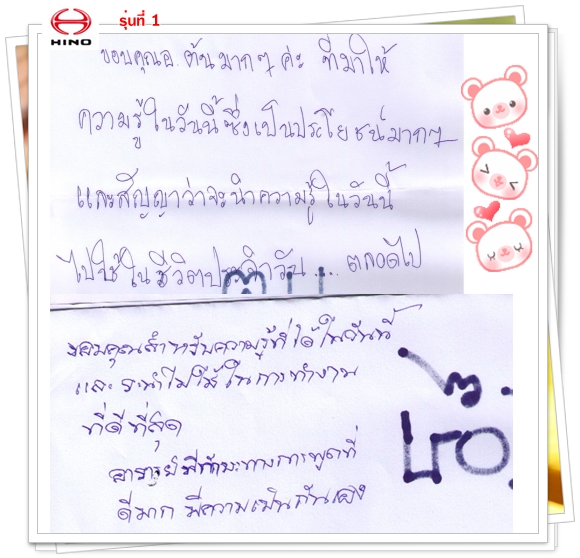 HINO
รุ่นที่ 1
ขอบคุณอ.ต้นมากๆ ค่ะ ที่มาให้
ความรู้ในวันนี้ซึ่งเป็นประโยชน์มากๆ
และสัญญาว่าจะนำความรู้ในวันนี้
ไปใช้ในชีวิตประจำวัน.... ตลอดไป
ขอบคุณสำหรับความรู้ที่ได้ในวันนี้
และจะนำไปใช้ในการทำงาน
ที่ดีที่สุด
อาจารย์มีทักษะทางการพูดที่
ดีมาก มีความเป็นกันเอง